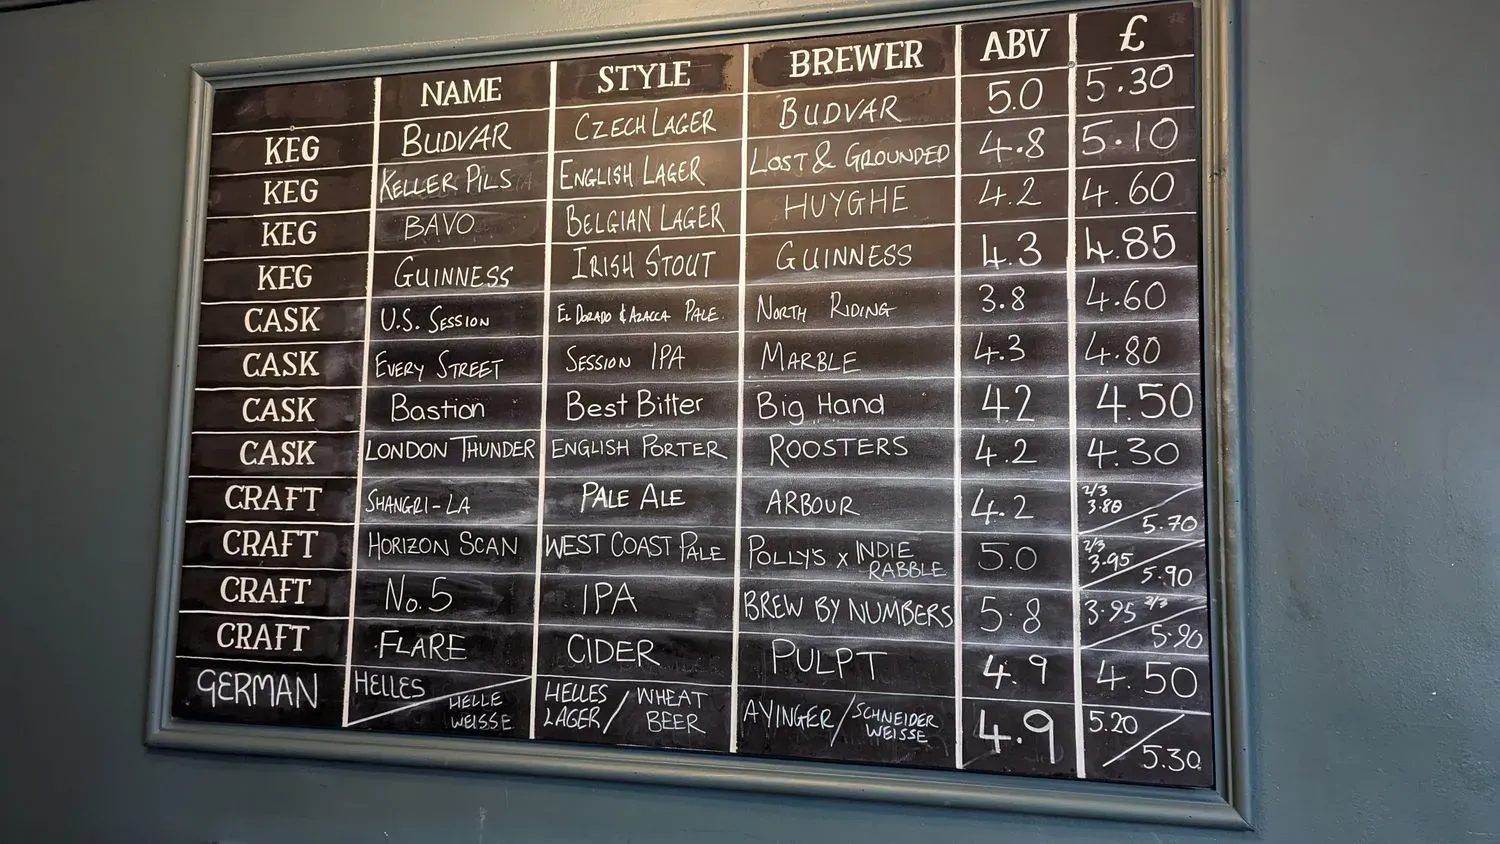 NAME STYLE BREWER ABV £
KEG BUDVAR CZECH LAGER BUDVAR 5.0 5.30
KEG KELLER PILS ENGLISH LAGER LOST & GROUNDED 4.8 5.10
KEG BAVO BELGIAN LAGER HUYGHE 4.2 4.60
KEG GUINNESS IRISH STOUT GUINNESS 4.3 4.85
CASK U.S. SESSION EL DORADO & AZACCA PALE. NORTH RIDING 3.8 4.60
CASK EVERY STREET SESSION IPA MARBLE 4.3 4.80
CASK Bastion Best Bitter Big Hand 42 4.50
CASK LONDON THUNDER ENGLISH PORTER ROOSTERS 4.2 4.30
CRAFT SHANGRI-LA PALE ALE ARBOUR 4.2 2/3 3.80 / 5.70
CRAFT HORIZON SCAN WEST COAST PALE POLLY'S x INDIE RABBLE 5.0 2/3 3.95 / 5.90
CRAFT No.5 IPA BREW BY NUMBERS 5.8 3.95 2/3 / 5.90
CRAFT FLARE CIDER PULPT 4.9 4.50
GERMAN HELLES / HELLE WEISSE HELLES LAGER / WHEAT BEER AYINGER / SCHNEIDER WEISSE 4.9 5.20 / 5.30